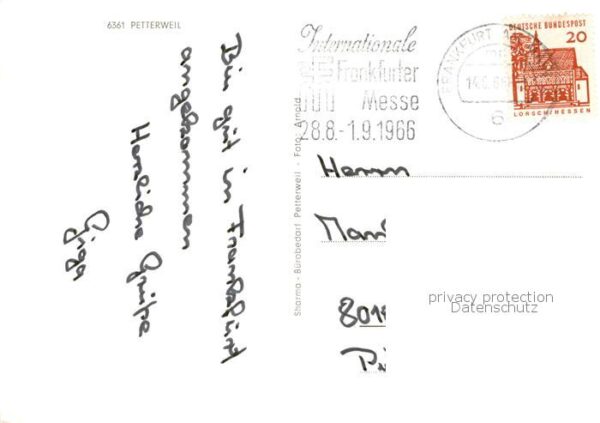 6361 PETTERWEIL
Bin gut in Frankfurt
angekommen
Herzliche Grüße
Gigga
Sharma - Bürobedarf Petterweil - Foto: Arnold
Internationale
Frankfurter
Messe
28.8.-1.9.1966
FRANKFURT
6
DEUTSCHE BUNDESPOST
20
LORSCH/HESSEN
Herrn
801
privacy protection
Datenschutz